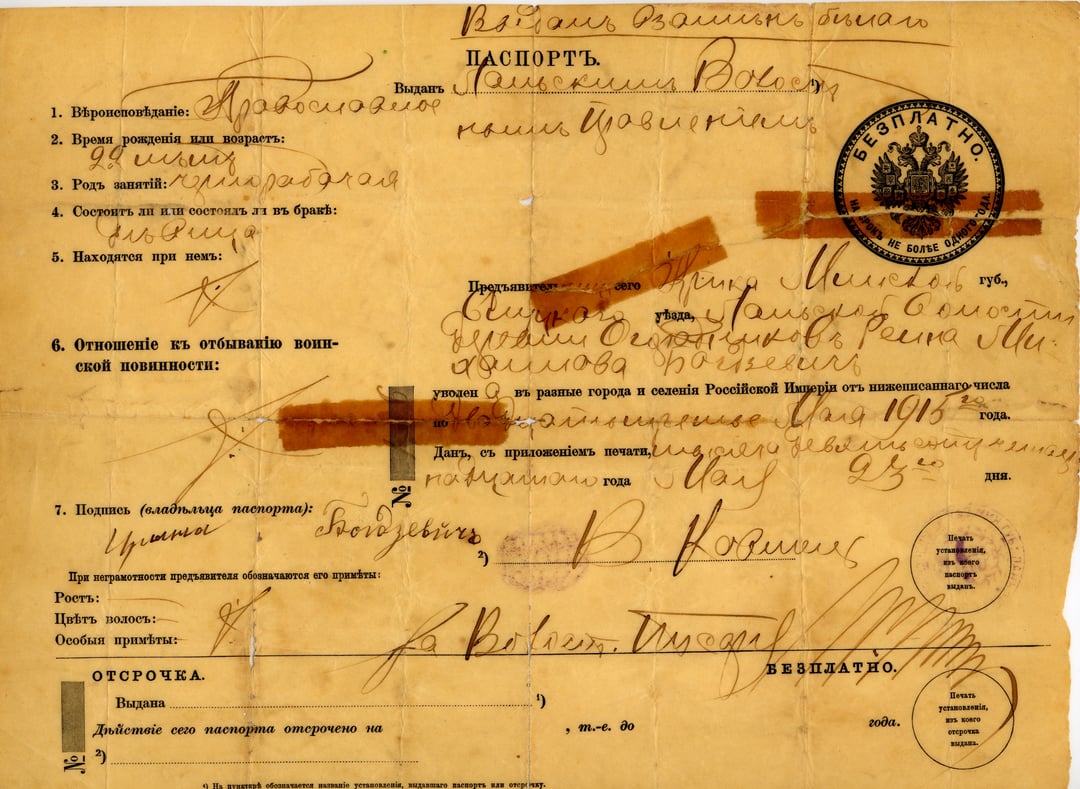 Выданъ взаменъ бывшаго
ПАСПОРТЪ.
Выданъ Ланьскимъ Волост ¹)
нымъ Правленіемъ
БЕЗПЛАТНО.
НА СРОКЪ НЕ БОЛѢЕ ОДНОГО ГОДА.
1. Вѣроисповѣданіе: Православное
2. Время рожденія или возрастъ:
22 лѣтъ
3. Родъ занятій: чернорабочая
4. Состоитъ ли или состоялъ ли въ бракѣ:
дѣвица
5. Находятся при немъ:
Предъявитель сего Минской губ.,
Слуцкаго уѣзда, Ланьской Волости
Деревни Ми-
хайлова Богдзевичъ
6. Отношеніе къ отбыванію воин-
ской повинности:
уволена въ разные города и селенія Россійской Имперіи отъ нижеписаннаго числа
по двадцать третье Мая 1915 го года.
Данъ, съ приложеніемъ печати, тысяча девятьсотъ четыр
надцатаго года Мая 23 го дня.
№
7. Подпись (владѣльца паспорта):
Ирина Богдзевичъ
²)
Печать установленія, изъ коего паспортъ выданъ.
При неграмотности предъявителя обозначаются его примѣты:
Ростъ:
Цвѣтъ волосъ:
Особыя примѣты:
За Волост. Писаря
ОТСРОЧКА.
БЕЗПЛАТНО.
Выдана ¹)
Дѣйствіе сего паспорта отсрочено на , т.-е. до года.
²)
№
Печать установленія, изъ коего отсрочка выдана.
¹) На пунктирѣ обозначается названіе установленія, выдавшаго паспортъ или отсрочку.